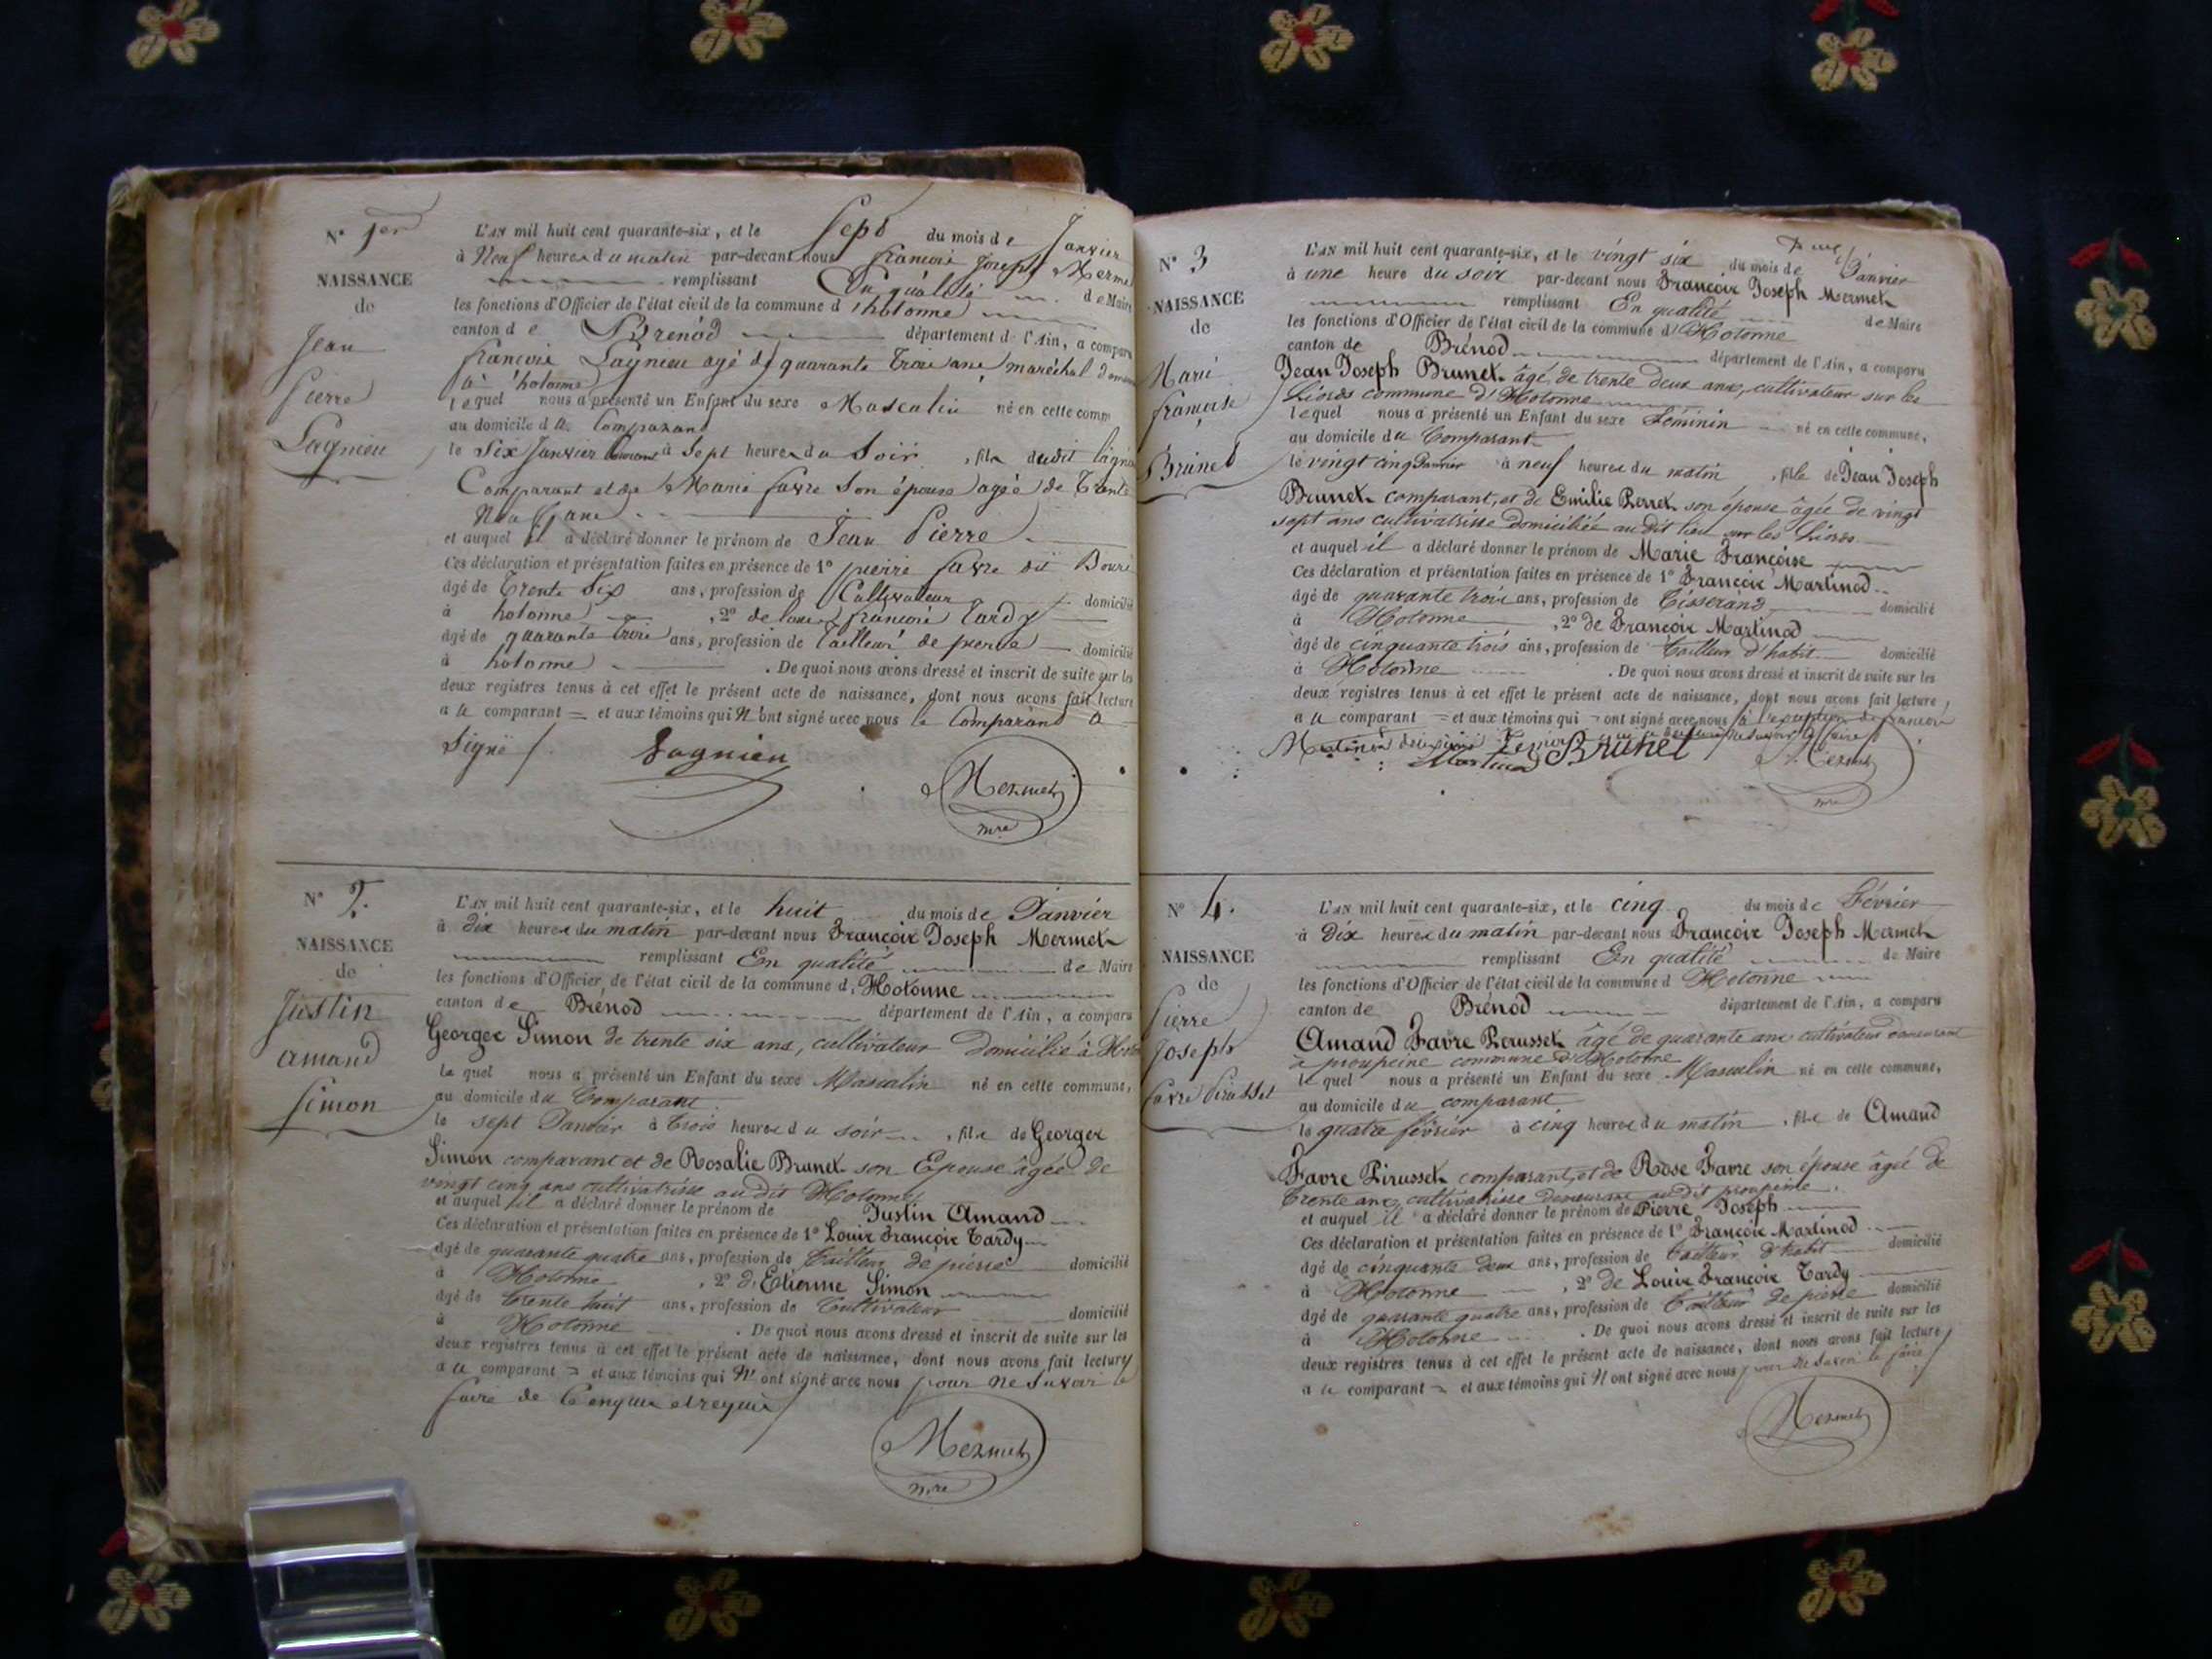 N° 1er
NAISSANCE
de
Jean
Pierre
Lagnieu
L'AN mil huit cent quarante-six, et le Sept du mois de Janvier
à Neuf heures du matin par-devant nous françois Joseph Merme
remplissant En qualité de Maire
les fonctions d'Officier de l'état civil de la commune d'hotonne
canton de Brenod département de l'Ain, a comparu
françois Lagnieu agé de quarante trois ans maréchal
à hotonne
lequel nous a présenté un Enfant du sexe Masculin né en cette comm
au domicile du Comparant
le Six Janvier Courant à Sept heures du Soir, fils dudit lagni
Comparant et de Marie favre Son épouse agée de Trente
Neuf ans
et auquel il a déclaré donner le prénom de Jean Pierre
Ces déclaration et présentation faites en présence de 1° pierre favre dit
âgé de Trente Six ans, profession de Cultivateur domicilié
à hotonne, 2° de louis françois Tardy
âgé de quarante trois ans, profession de Tailleur de pierre domicilié
à hotonne. De quoi nous avons dressé et inscrit de suite sur les
deux registres tenus à cet effet le présent acte de naissance, dont nous avons fait lecture
au comparant = et aux témoins qui N'ont signé avec nous le Comparant a
Signé
Lagnieu
Mermet
mre
N° 2.
NAISSANCE
de
Justin
amand
Simon
L'AN mil huit cent quarante-six, et le huit du mois de Janvier
à dix heures du matin par-devant nous François Joseph Mermet
remplissant En qualité de Maire
les fonctions d'Officier de l'état civil de la commune d'Hotonne
canton de Brénod département de l'Ain, a comparu
George Simon de trente six ans, cultivateur Domicilié à Hoto
lequel nous a présenté un Enfant du sexe Masculin né en cette commune,
au domicile du Comparant
le sept Janvier à trois heures du soir, fils de George
Simon comparant et de Rosalie Brunet son Epouse âgée de
vingt cinq ans cultivatrisse au dit Hotonne
et auquel il a déclaré donner le prénom de Justin Amand
Ces déclaration et présentation faites en présence de 1° Louis François Tardy
âgé de quarante quatre ans, profession de tailleur de pierre domicilié
à Hotonne, 2° d'Etienne Simon
âgé de trente huit ans, profession de Cultivateur domicilié
à Hotonne. De quoi nous avons dressé et inscrit de suite sur les
deux registres tenus à cet effet le présent acte de naissance, dont nous avons fait lecture
au comparant = et aux témoins qui N'ont signé avec nous pour Ne Savoir le
faire de
Mermet
mre
N° 3
NAISSANCE
de
Marie
françoise
Brunet
L'AN mil huit cent quarante-six, et le vingt six du mois de Janvier
à une heure du soir par-devant nous François Joseph Mermet
remplissant En qualité de Maire
les fonctions d'Officier de l'état civil de la commune d'Hotonne
canton de Brénod département de l'Ain, a comparu
Jean Joseph Brunet âgé de trente deux ans, cultivateur sur les
Liores commune d'Hotonne
lequel nous a présenté un Enfant du sexe Féminin né en cette commune,
au domicile du Comparant
le vingt cinq Janvier à neuf heures du matin, fille de Jean Joseph
Brunet comparant, et de Emilie Perret son épouse âgée de vingt
sept ans cultivatrisse domiciliée au dit lieu sur les Liores
et auquel il a déclaré donner le prénom de Marie Françoise
Ces déclaration et présentation faites en présence de 1° François Martinod
âgé de quarante trois ans, profession de Tisserand domicilié
à Hotonne, 2° de François Martinod
âgé de cinquante trois ans, profession de tailleur d'habit domicilié
à Hotonne. De quoi nous avons dressé et inscrit de suite sur les
deux registres tenus à cet effet le présent acte de naissance, dont nous avons fait lecture,
au comparant = et aux témoins qui ont signé avec nous à l'exception de françois
Martinod
Martinod Brunet Mermet
mre
N° 4.
NAISSANCE
de
Pierre
Joseph
favre Pirusset
L'AN mil huit cent quarante-six, et le cinq du mois de Février
à Dix heures du matin par-devant nous François Joseph Mermet
remplissant En qualité de Maire
les fonctions d'Officier de l'état civil de la commune d'Hotonne
canton de Brénod département de l'Ain, a comparu
Amand Favre Perusset âgé de quarante ans cultivateur demeurant
à proupeine commune d'Hotonne
lequel nous a présenté un Enfant du sexe Masculin né en cette commune,
au domicile du comparant
le quatre février à cinq heures du matin, fils de Amand
Favre Pirusset comparant, et de Rose Favre son épouse âgée de
trente ans, cultivatrisse demeurant au dit proupeine.
et auquel il a déclaré donner le prénom de Pierre Joseph
Ces déclaration et présentation faites en présence de 1° François Martinod
âgé de cinquante deux ans, profession de tailleur d'habit domicilié
à Hotonne, 2° de Louis François Tardy
âgé de quarante quatre ans, profession de tailleur de pierre domicilié
à Hotonne. De quoi nous avons dressé et inscrit de suite sur les
deux registres tenus à cet effet le présent acte de naissance, dont nous avons fait lecture
au comparant = et aux témoins qui N'ont signé avec nous pour Ne Savoir le faire
Mermet